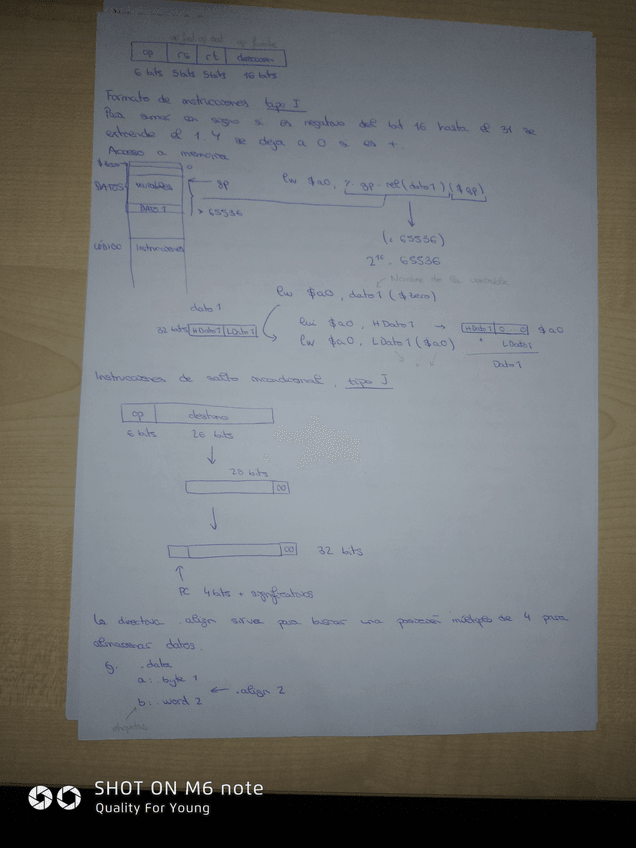 op rs rt dirección
6 bits 5 bits 5 bits 16 bits
Formato de instrucciones tipo I
Para sumar en signo si es negativo del bit 16 hasta el 31 se
extiende el 1. Y se deja a 0 si es +.
Acceso a memoria
DATOS variables gp lw $a0, %gp-rel(dato1)($gp)
DATO 1 > 65536
CÓDIGO instrucciones (< 65536)
2¹⁶ = 65536
Nombre de la variable
lw $a0, dato1($zero)
dato1
32 bits HDato1 LDato1 lui $a0, HDato1 → HDato1 0...0 $a0
lw $a0, LDato1($a0) + LDato1
Dato1
Instrucciones de salto incondicional, tipo J
op destino
6 bits 26 bits
28 bits
00
00 32 bits
PC 4 bits + significativos
La directiva .align sirve para buscar una posición múltiplo de 4 para
almacenar datos.
Ej. .data
a: .byte 1
← .align 2
b: .word 2
etiquetas
SHOT ON M6 note
Quality For Young